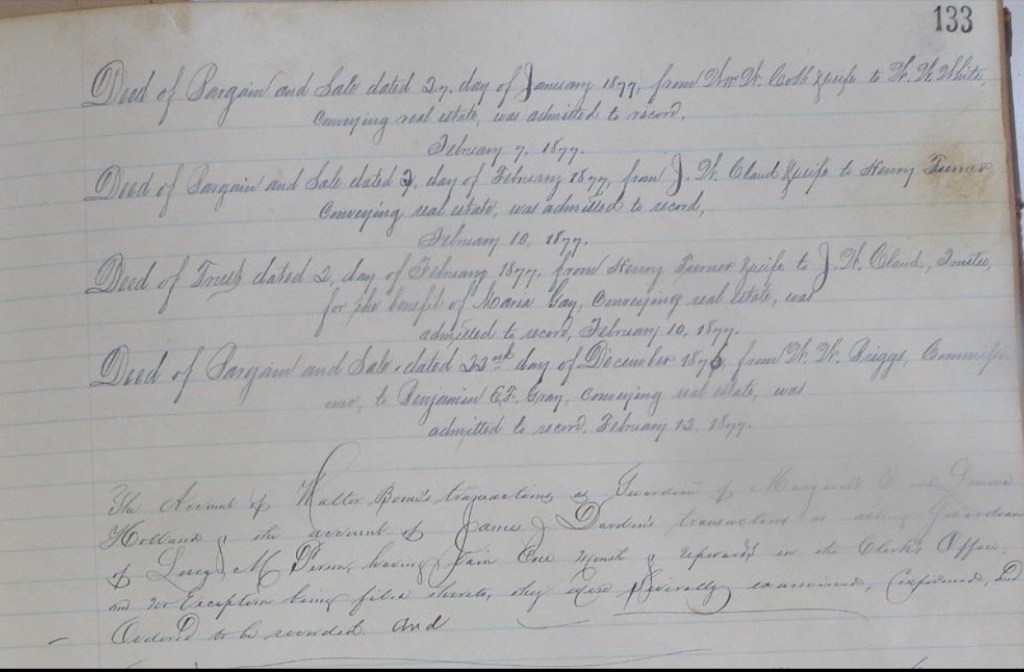 133
Deed of Bargain and Sale dated 27, day of January 1877, from Wm W. Cobb & wife to W. W. White,
Conveying real estate, was admitted to record,
February 7, 1877.
Deed of Bargain and Sale dated 2, day of February 1877, from J. W. Claud & wife to Henry Turner
Conveying real estate, was admitted to record,
February 10, 1877.
Deed of Trust dated 2, day of February 1877, from Henry Turner & wife to J. W. Claud, Trustee,
for the benefit of Maria Gay, Conveying real estate, was
admitted to record, February 10, 1877.
Deed of Bargain and Sale, dated 22nd day of December 1876, from W. W. Briggs, Commissi
oner, to Benjamin E. F. Gray, Conveying real estate, was
admitted to record, February 12, 1877.
The Account of Walter transactions as Guardian of Margaret
Holland & the account of James J Darden's transactions as Guardian
of Lucy M having lain One Month & upwards in the Clerk's Office,
and no Exception being filed thereto, they were Severally examined, Confirmed, and
Ordered to be recorded. and